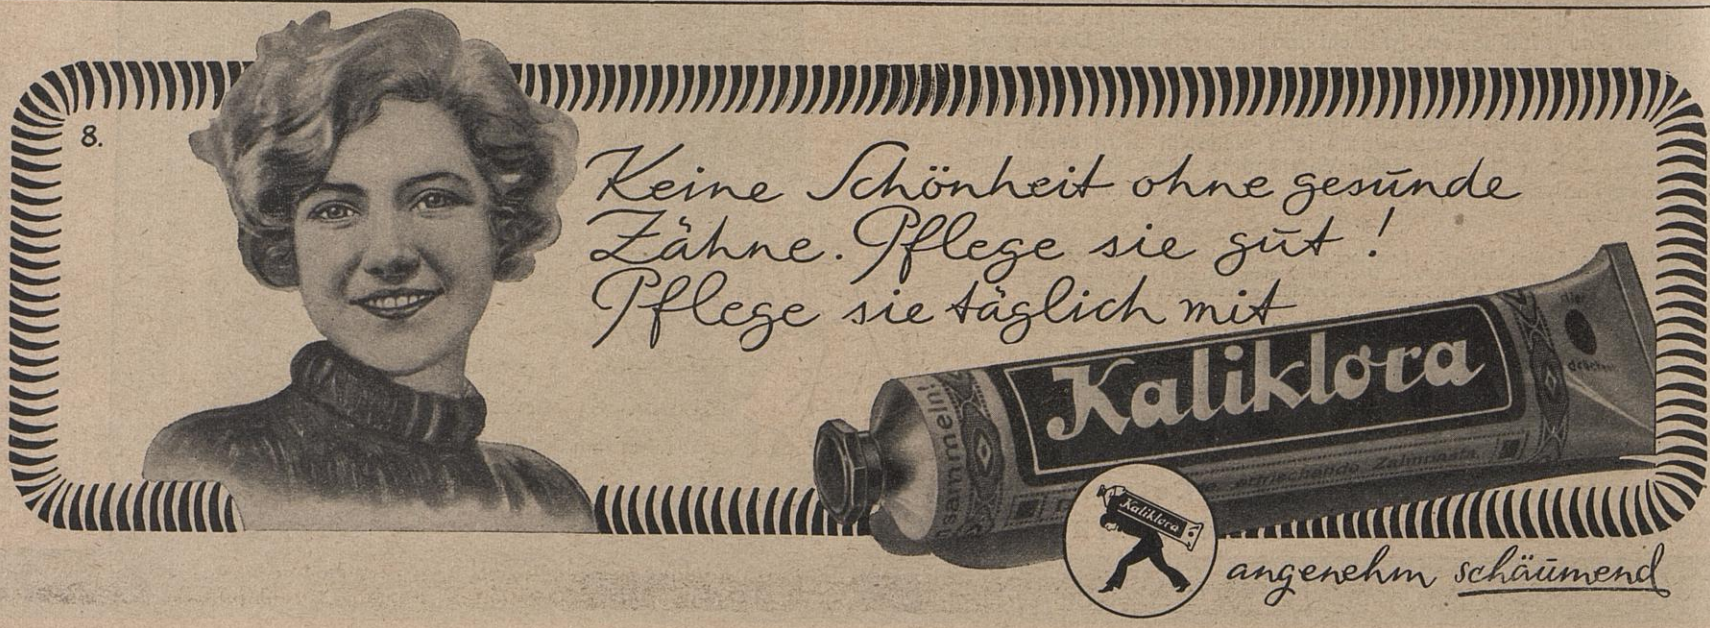 8.
Keine Schönheit ohne gesunde
Zähne. Pflege sie gut!
Pflege sie täglich mit
Kaliklora
sammeln!
erfrischende Zahnpasta.
Hier
drücken
Kaliklora
angenehm schäumend